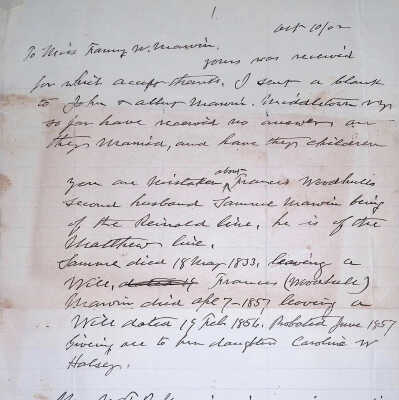 1
Oct 10/02
To Miss Fanny W. Marvin.
yours was received
for which accept thanks. I sent a blank
to John & Albert Marvin. Middletown NY
so far have received no answer are
they Married, and have they children
you are Mistaken about Frances Woodhulls
second husband Samuel Marvin being
of the Reinold line, he is of the
Matthew line.
Samuel died 18 May 1833, leaving a
Will, dated 19 Frances (Woodhull)
Marvin died Apl 7-1857 leaving a
Will dated 19 Feb 1856. Probated June 1857
Giving all to her daughter Caroline W
Halsey.